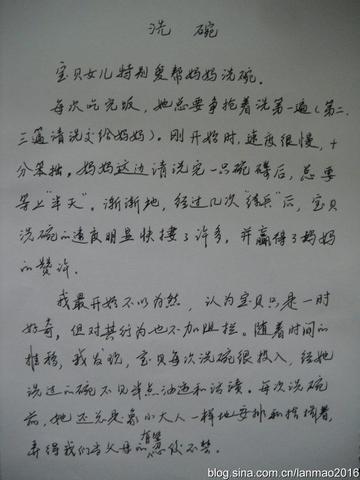 洗 碗
宝贝女儿特别爱帮妈妈洗碗。
每次吃完饭，她总要争抢着洗第一遍（第二、
三遍请洗交给妈妈）。刚开始时，速度很慢，十
分笨拙。妈妈这边清洗完一只碗碟后，总要
等上“半天”。渐渐地，经过几次“练兵”后，宝贝
洗碗的速度明显快捷了许多，并赢得了妈妈
的赞许。
我最开始不以为然，认为宝贝只是一时
好奇，但对其行为也不加阻拦。随着时间的
推移，我发现，宝贝每次洗碗很投入，经她
洗过的碗不见半点油迹和污渍。每次洗碗
前，她还总是象小大人一样地安排和指挥着，
弄得我们当父母的有些忍俊不禁。
blog.sina.com.cn/lanmao2016